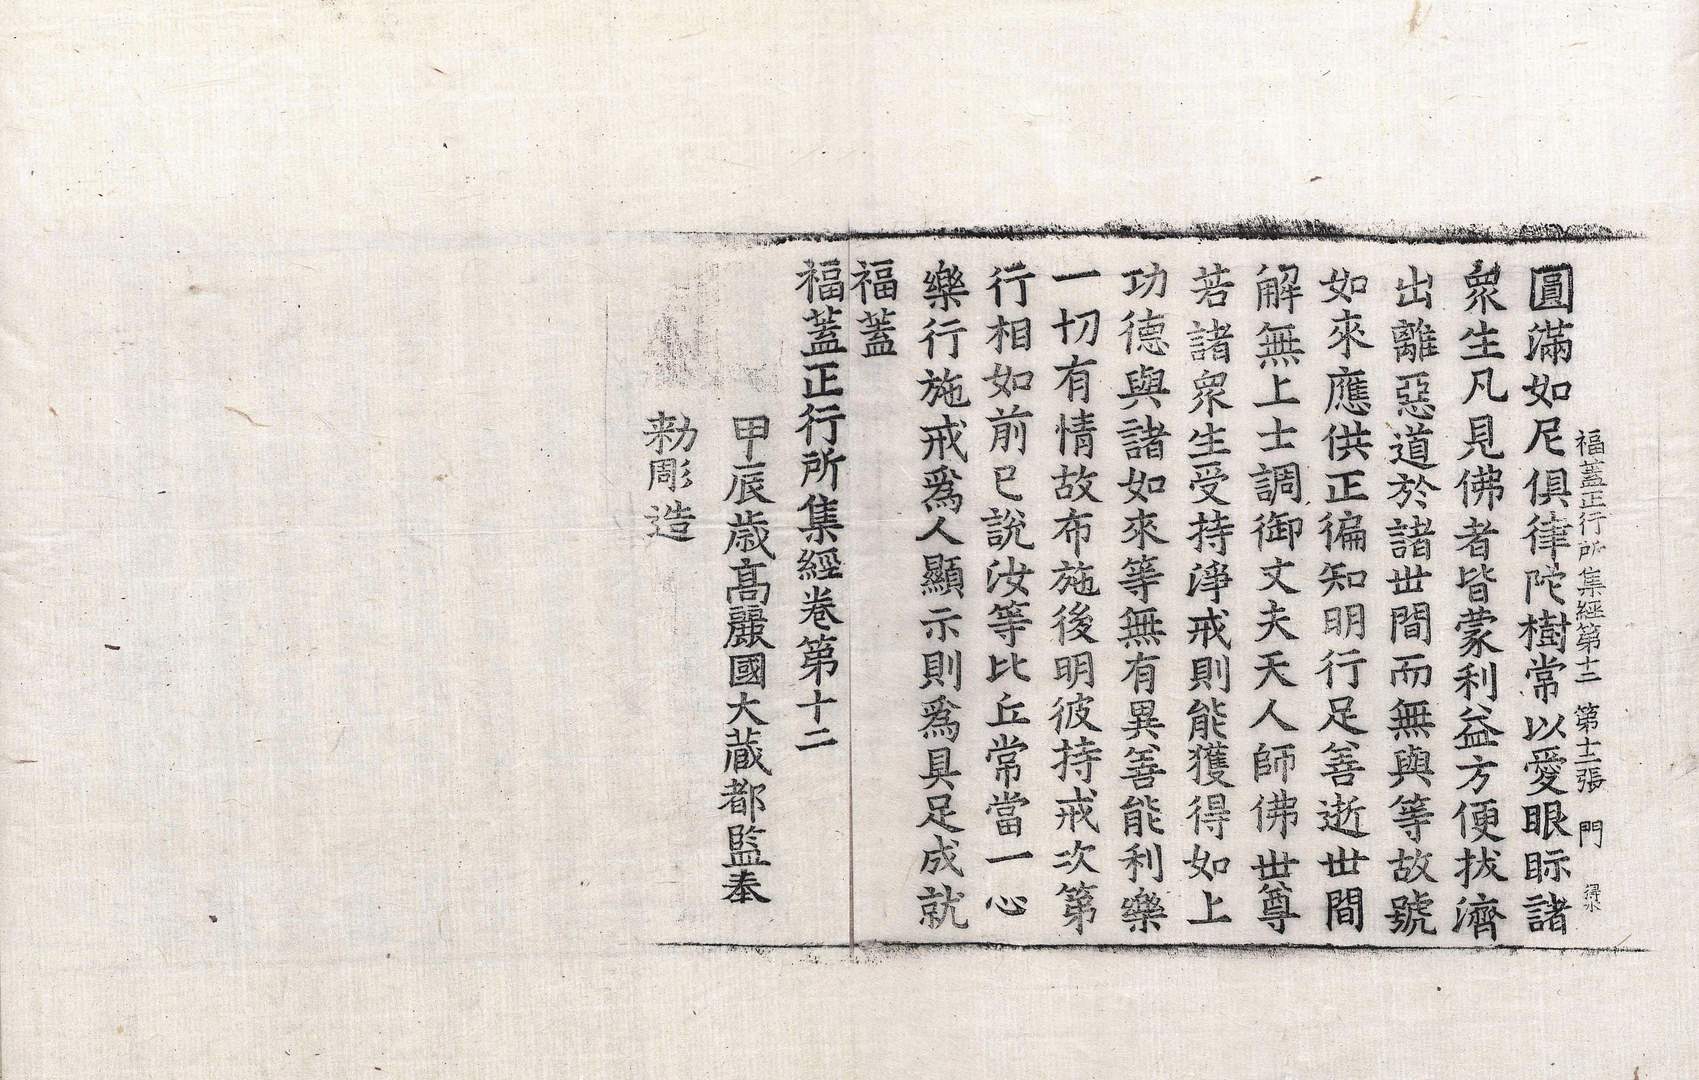 福蓋正行所集經第十二 第十二張 門 得水
圓滿如尼俱律陀樹常以愛眼眎諸
衆生凡見佛者皆蒙利益方便拔濟
出離惡道於諸世間而無與等故號
如來應供正徧知明行足善逝世間
解無上士調御丈夫天人師佛世尊
若諸衆生受持淨戒則能獲得如上
功德與諸如來等無有異善能利樂
一切有情故布施後明彼持戒次第
行相如前已說汝等比丘常當一心
樂行施戒爲人顯示則爲具足成就
福蓋
福蓋正行所集經卷第十二
甲辰歲高麗國大藏都監奉
勑彫造